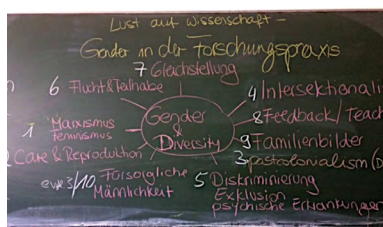 Lust auf Wissenschaft –
Gender in der Forschungspraxis
7 Gleichstellung
6 Flucht & Teilhabe
4 Intersektionali
8 Feedback / Teach
Gender
&
Diversity
1 Marxismus
Feminismus
9 Familienbilder
Care & Reproduktion
3 postcolonialism (D
3/10 Fürsorgliche
Männlichkeit
5 Diskriminierung
Exklusion
psychische Erkrankungen